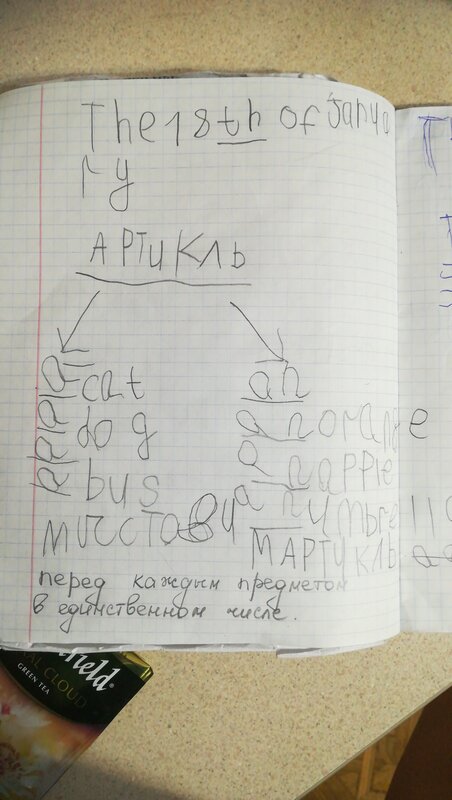 The 18th of Janua
ry
АРТИКЛЬ
a an
a cat an orange
a dog an apple
a bus an umbrella
мы стави
м артикль
перед каждым предметом
в единственном числе.
field®
CLOUD
GREEN TEA